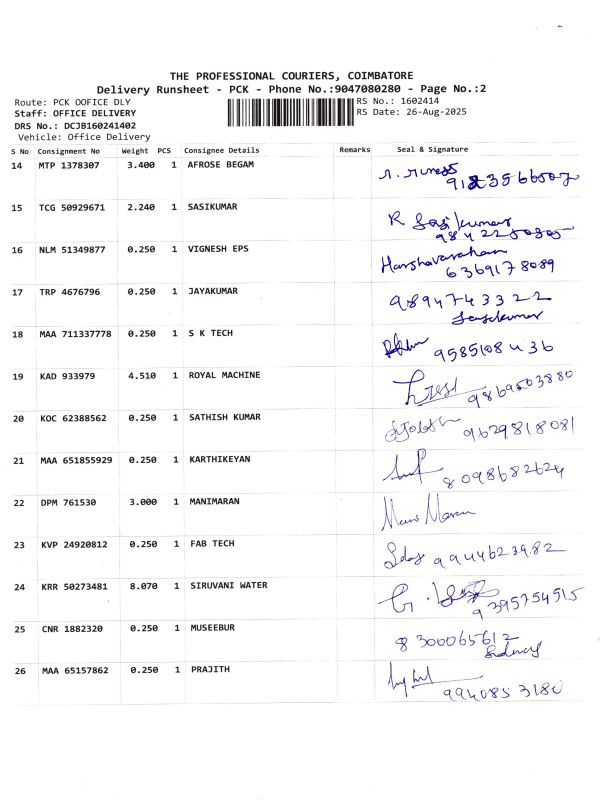 THE PROFESSIONAL COURIERS, COIMBATORE
Delivery Runsheet - PCK - Phone No.:9047080280 - Page No.:2
Route: PCK OOFICE DLY RS No.: 1602414
Staff: OFFICE DELIVERY RS Date: 26-Aug-2025
DRS No.: DCJB160241402
Vehicle: Office Delivery
S No Consignment No Weight PCS Consignee Details Remarks Seal & Signature
14 MTP 1378307 3.400 1 AFROSE BEGAM
15 TCG 50929671 2.240 1 SASIKUMAR R Sasikumar
16 NLM 51349877 0.250 1 VIGNESH EPS Harshavardhan
6369178089
17 TRP 4676796 0.250 1 JAYAKUMAR 9894743322
Jayakumar
18 MAA 711337778 0.250 1 S K TECH 9585108436
19 KAD 933979 4.510 1 ROYAL MACHINE 9869503880
20 KOC 62388562 0.250 1 SATHISH KUMAR 9629818081
21 MAA 651855929 0.250 1 KARTHIKEYAN 8098682624
22 DPM 761530 3.000 1 MANIMARAN Mani Maran
23 KVP 24920812 0.250 1 FAB TECH 9944623982
24 KRR 50273481 8.070 1 SIRUVANI WATER 9395754515
25 CNR 1882320 0.250 1 MUSEEBUR 8300065612
26 MAA 65157862 0.250 1 PRAJITH 9940853180